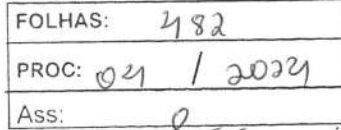 FOLHAS: 482
PROC: 04 / 2024
Ass: